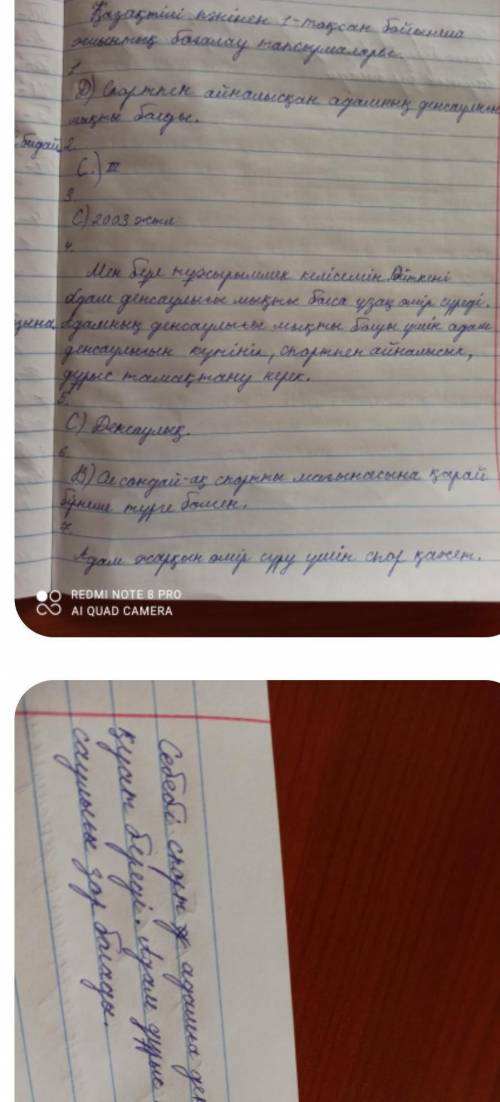 Қазақтілі пәнінен 1-тоқсан бойынша
жиынтық бағалау тапсырмалары.
1.
D) Спортпен айналысқан адамның денсаулығы
мықты болды.
2.
C.) III
3.
C) 2003 жыл
4.
Мен бұл тұжырыммен келісемін. Өйткені
Адам денсаулығы мықты болса ұзақ өмір сүреді.
Адамның денсаулығы мықты болуы үшін адам
денсаулығын күтініп, спортпен айналысып,
дұрыс тамақтану керек.
5.
C) Денсаулық.
6.
B) Ол сондай-ақ спортты мағынасына қарай
бірнеше түрге бөлген.
7.
Адам жарқын өмір сүру үшін спор қажет.
REDMI NOTE 8 PRO
AI QUAD CAMERA
Себебі спорт адамға ден
қуат береді. Адам дұрыс
саулығы зор болады.